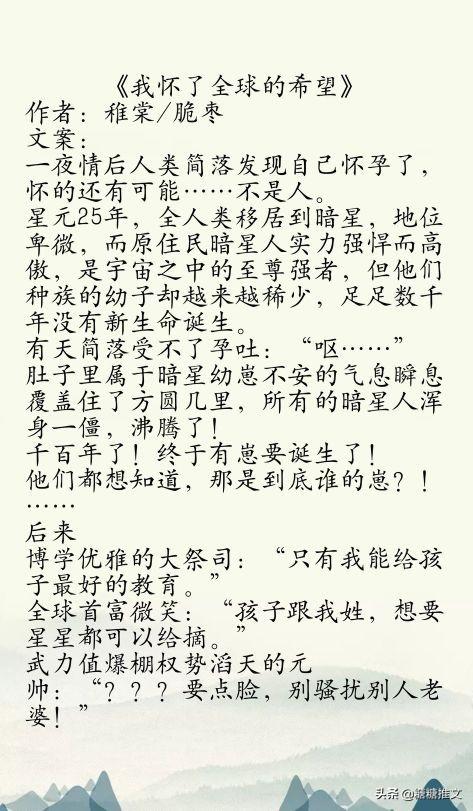 《我怀了全球的希望》
作者：稚棠/脆枣
文案：
一夜情后人类简落发现自己怀孕了，
怀的还有可能……不是人。
星元25年，全人类移居到暗星，地位
卑微，而原住民暗星人实力强悍而高
傲，是宇宙之中的至尊强者，但他们
种族的幼子却越来越稀少，足足数千
年没有新生命诞生。
有天简落受不了孕吐：“呕……”
肚子里属于暗星幼崽不安的气息瞬息
覆盖住了方圆几里，所有的暗星人浑
身一僵，沸腾了！
千百年了！终于有崽要诞生了！
他们都想知道，那是到底谁的崽？！
……
后来
博学优雅的大祭司：“只有我能给孩
子最好的教育。”
全球首富微笑：“孩子跟我姓，想要
星星都可以给摘。”
武力值爆棚权势滔天的元
帅：“？？？要点脸，别骚扰别人老
婆！”
头条@糖糖推文